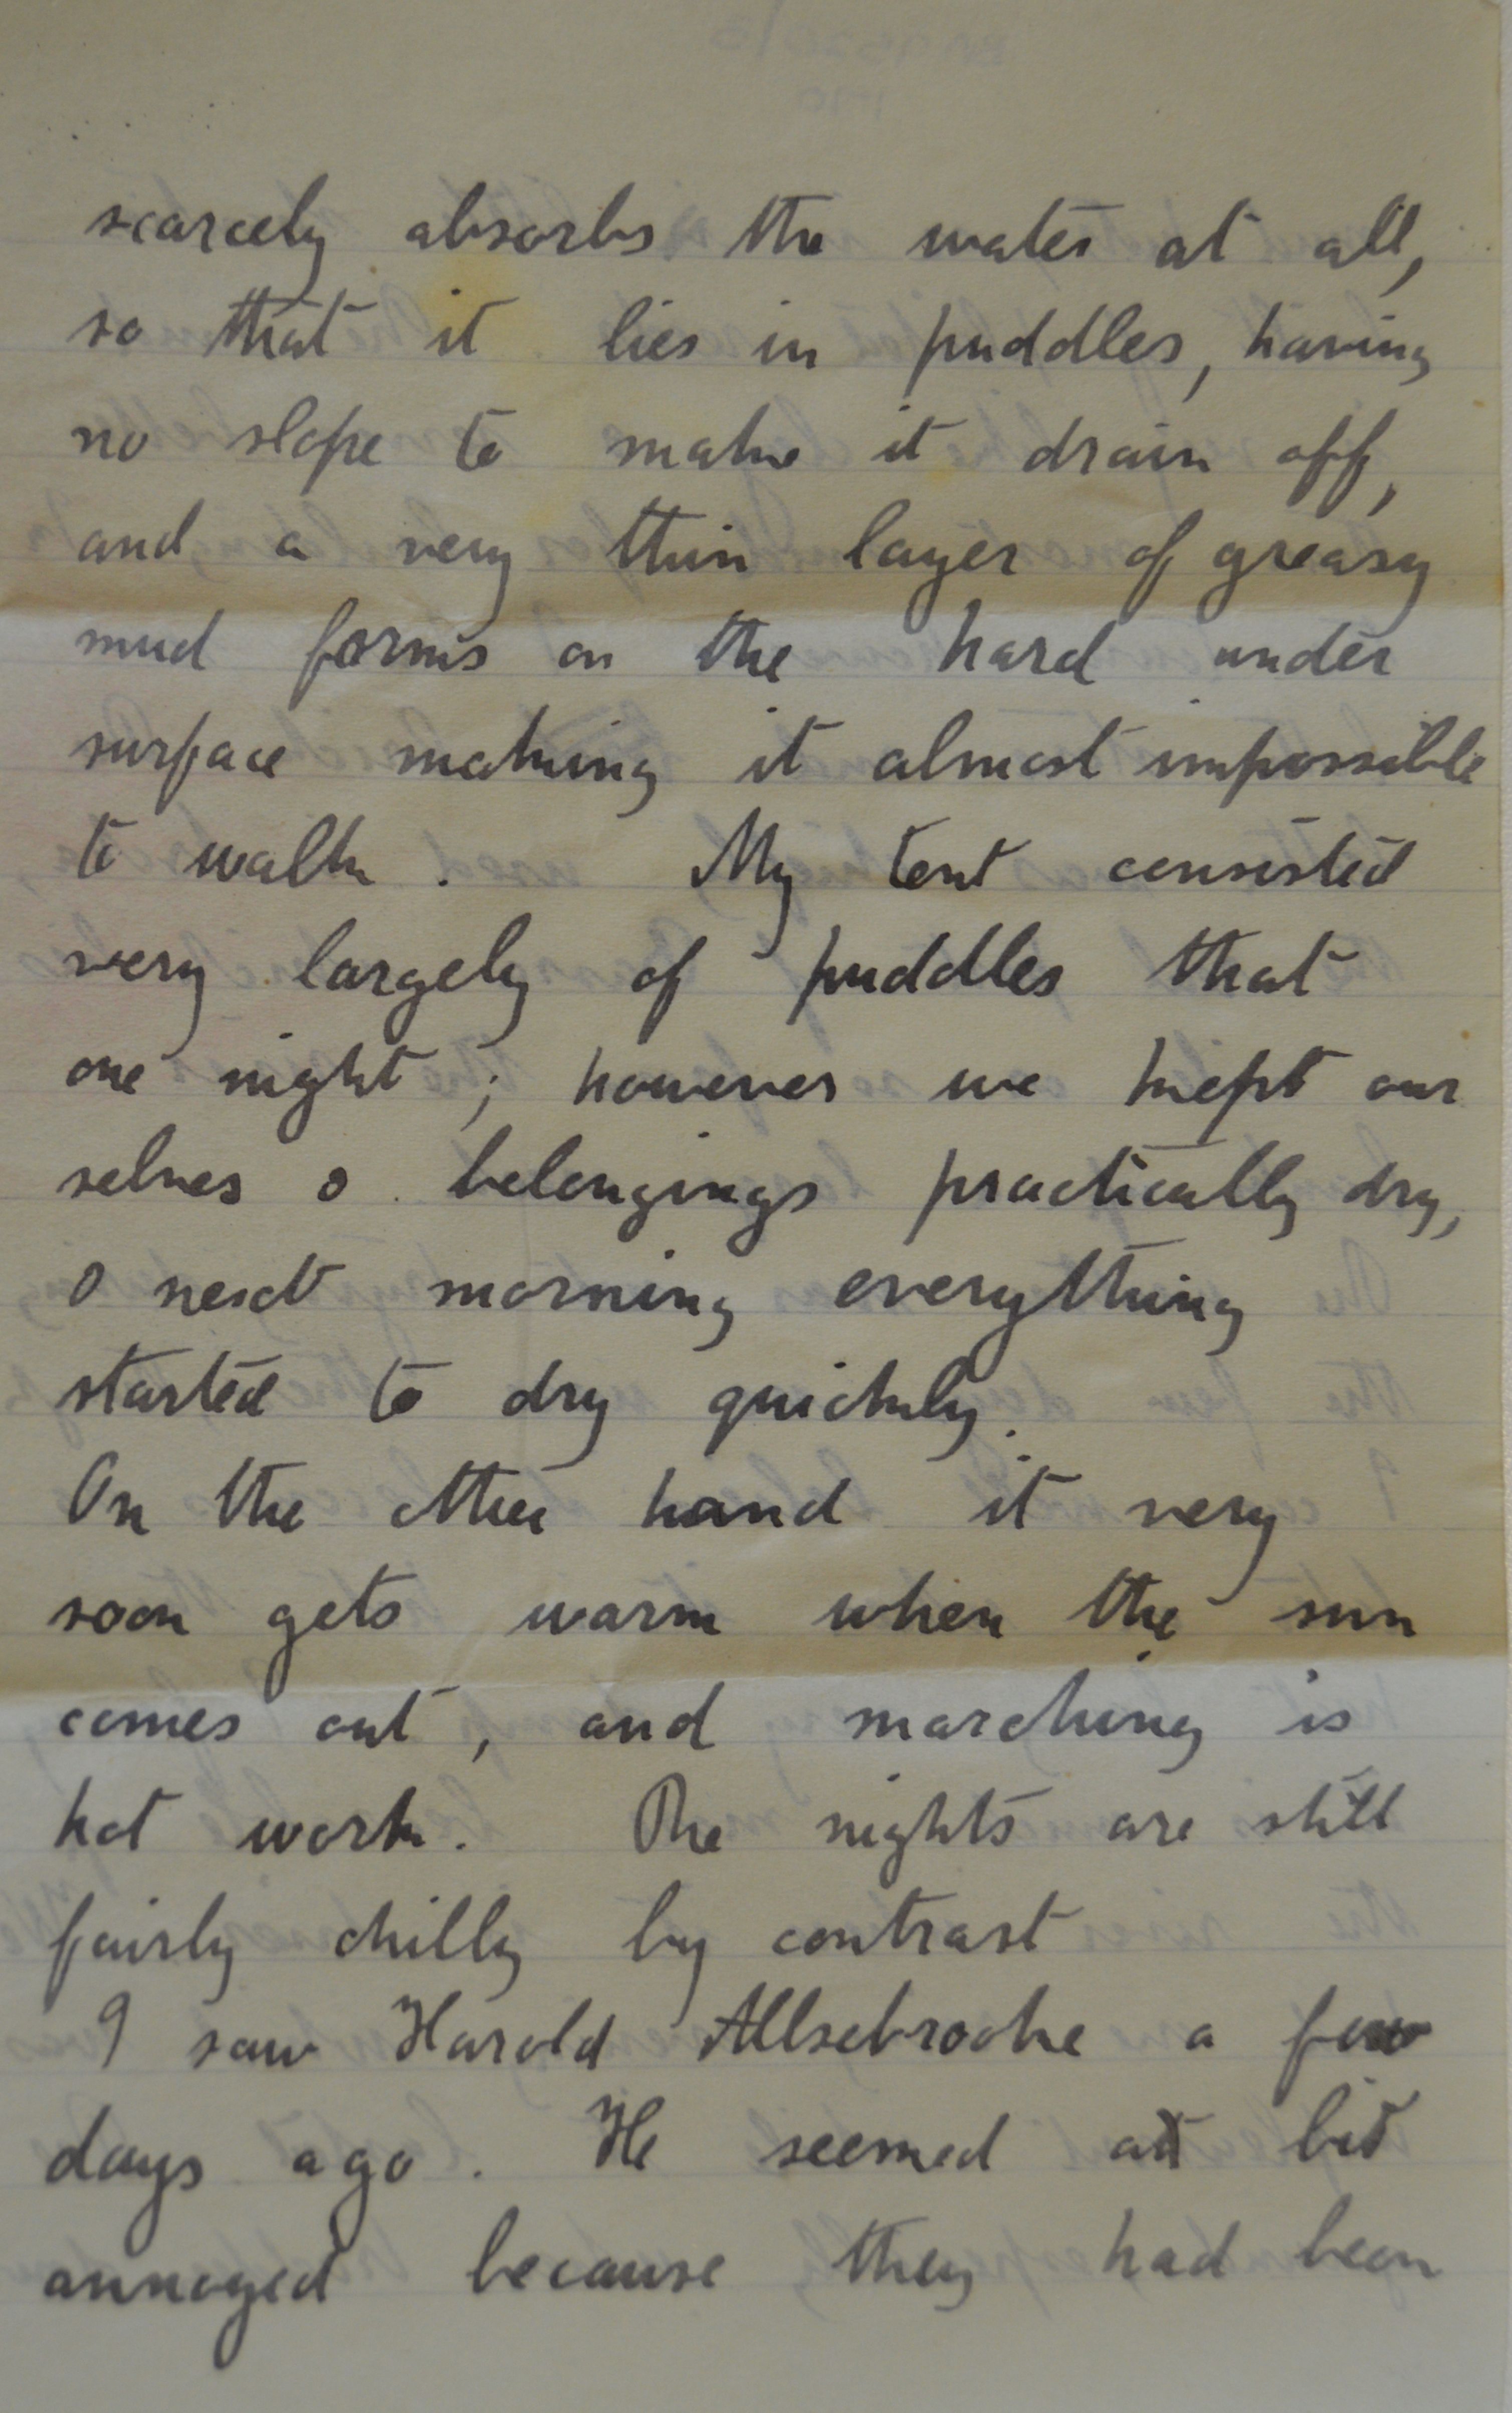 scarcely absorbs the water at all,
so that it lies in puddles, having
no slope to make it drain off,
and a very thin layer of greasy
mud forms on the hard under
surface making it almost impossible
to walk. My tent consisted
very largely of puddles that
one night; however we kept our
selves & belongings practically dry,
& next morning everything
started to dry quickly.
On the other hand it very
soon gets warm when the sun
comes out, and marching is
hot work. The nights are still
fairly chilly by contrast
I saw Harold Allsebrooke a few
days ago. He seemed a bit
annoyed because they had been